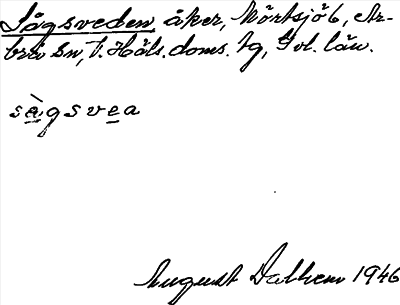 Sågsveden, åker, Mörtsjö 6, Ar-
brå sn, V. Häls. doms. tg, Gvl. län.
sàgsvea
August Dalhem 1946